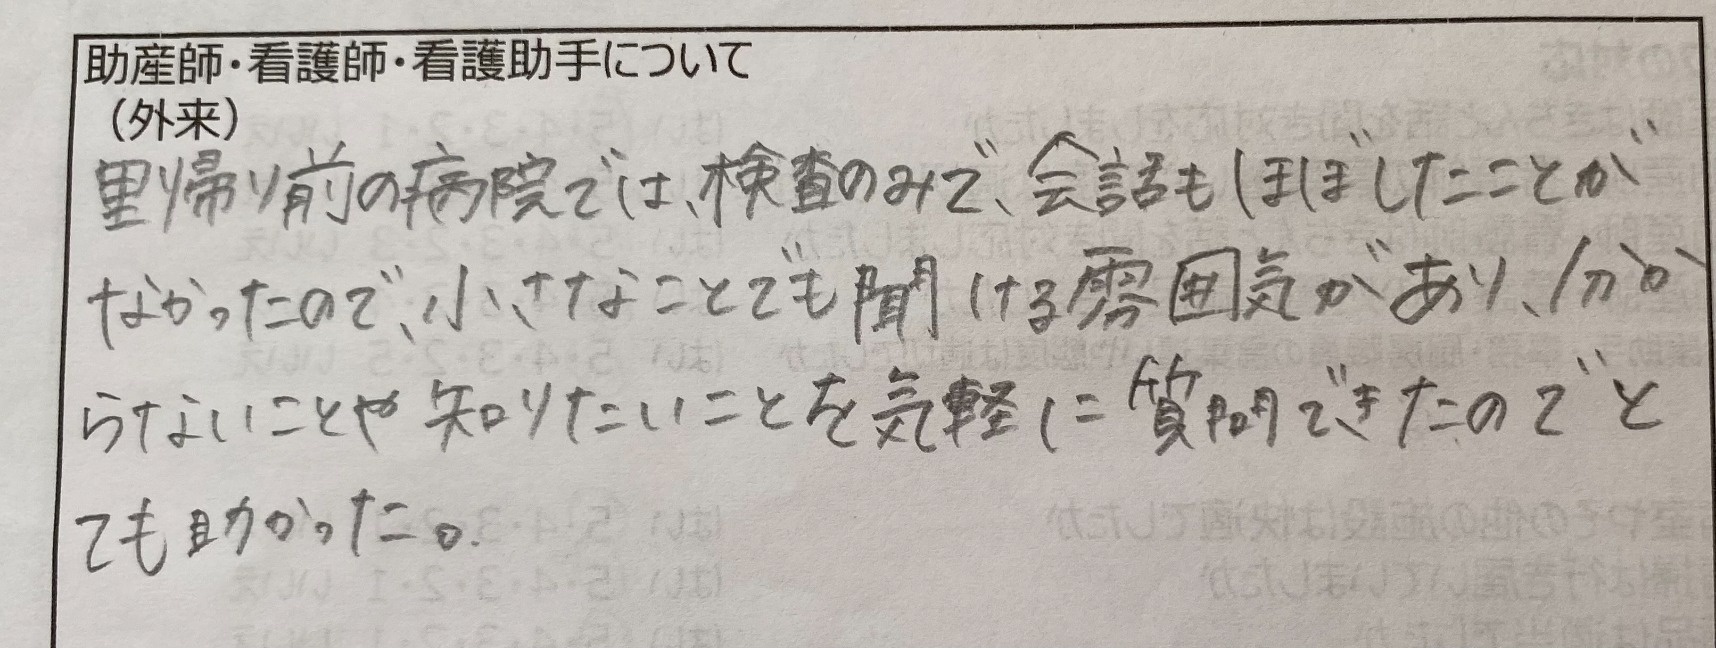 助産師・看護師・看護助手について
（外来）
里帰り前の病院では、検査のみで、会話もほぼしたことが
なかったので、小さなことでも聞ける雰囲気があり、分か
らないことや知りたいことを気軽に質問できたのでと
ても助かった。